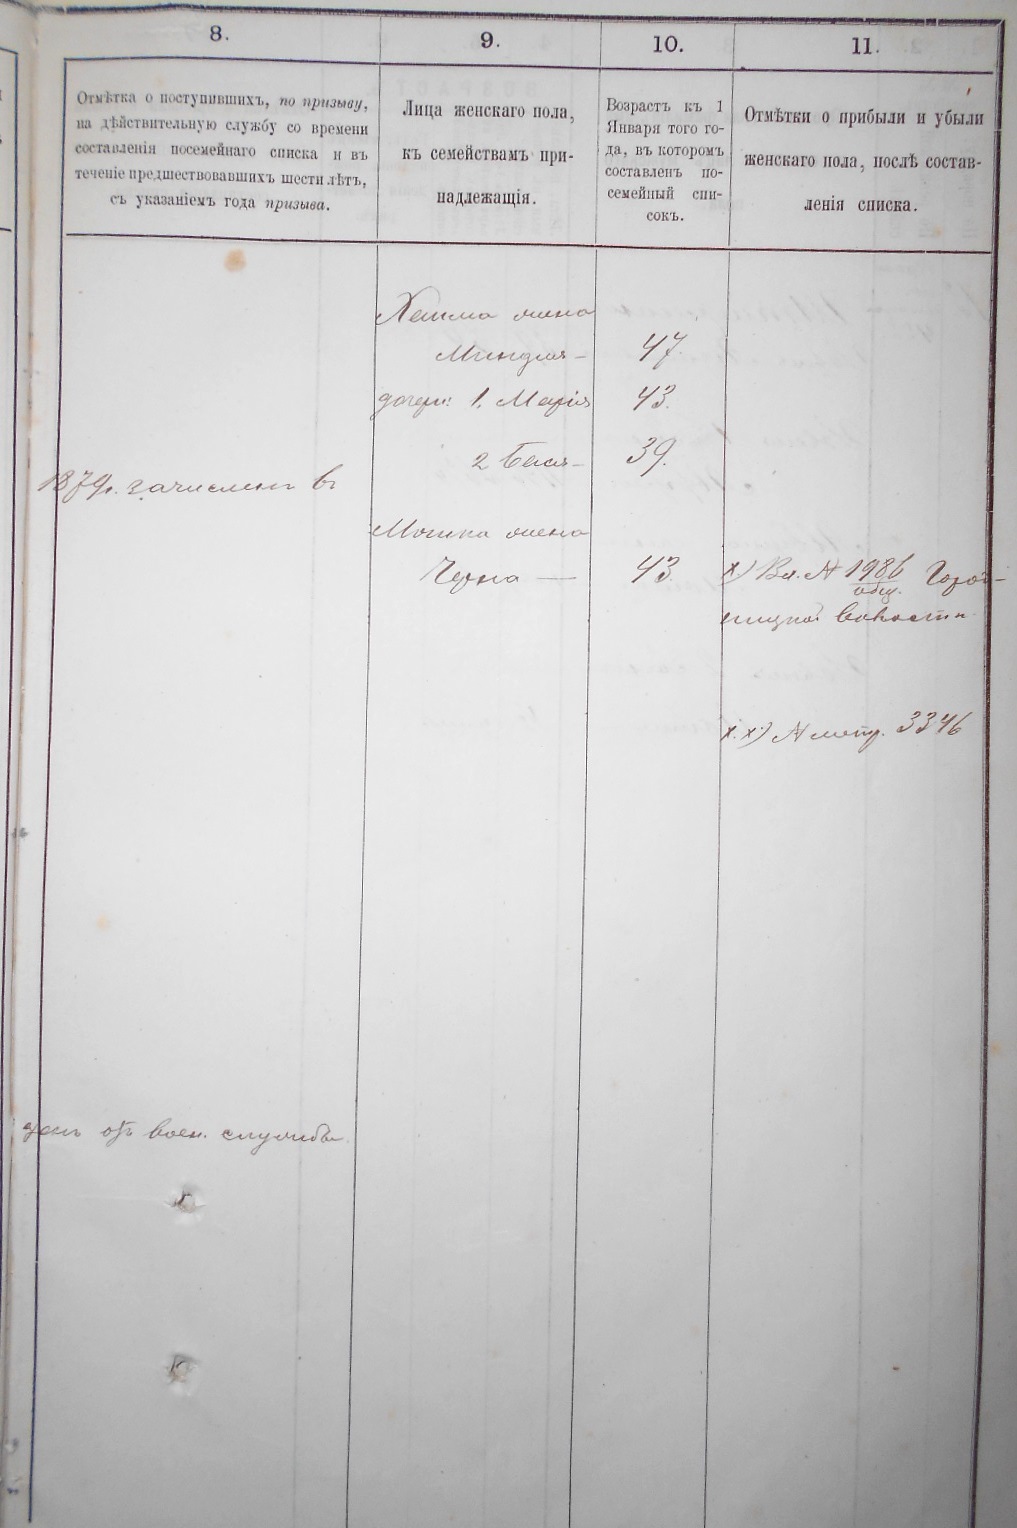 8.
9.
10.
11.
Отмѣтка о поступившихъ, по призыву,
на дѣйствительную службу со времени
составленія посемейнаго списка и въ
теченіе предшествовавшихъ шести лѣтъ,
съ указаніемъ года призыва.
Лица женскаго пола,
къ семействамъ при-
надлежащія.
Возрастъ къ 1
Января того го-
да, въ которомъ
составленъ по-
семейный спи-
сокъ.
Отмѣтки о прибыли и убыли
женскаго пола, послѣ состав-
ленія списка.
жена
Миндля – 47.
дочери: 1. Марія 43.
2 Бася – 39.
187 г. зачисленъ въ
Мошка жена
Черна — 43
х) Вх. № 1986 Город-
общ.
ницкой волости
х.х) № метр. 3346
денъ отъ воен. службы